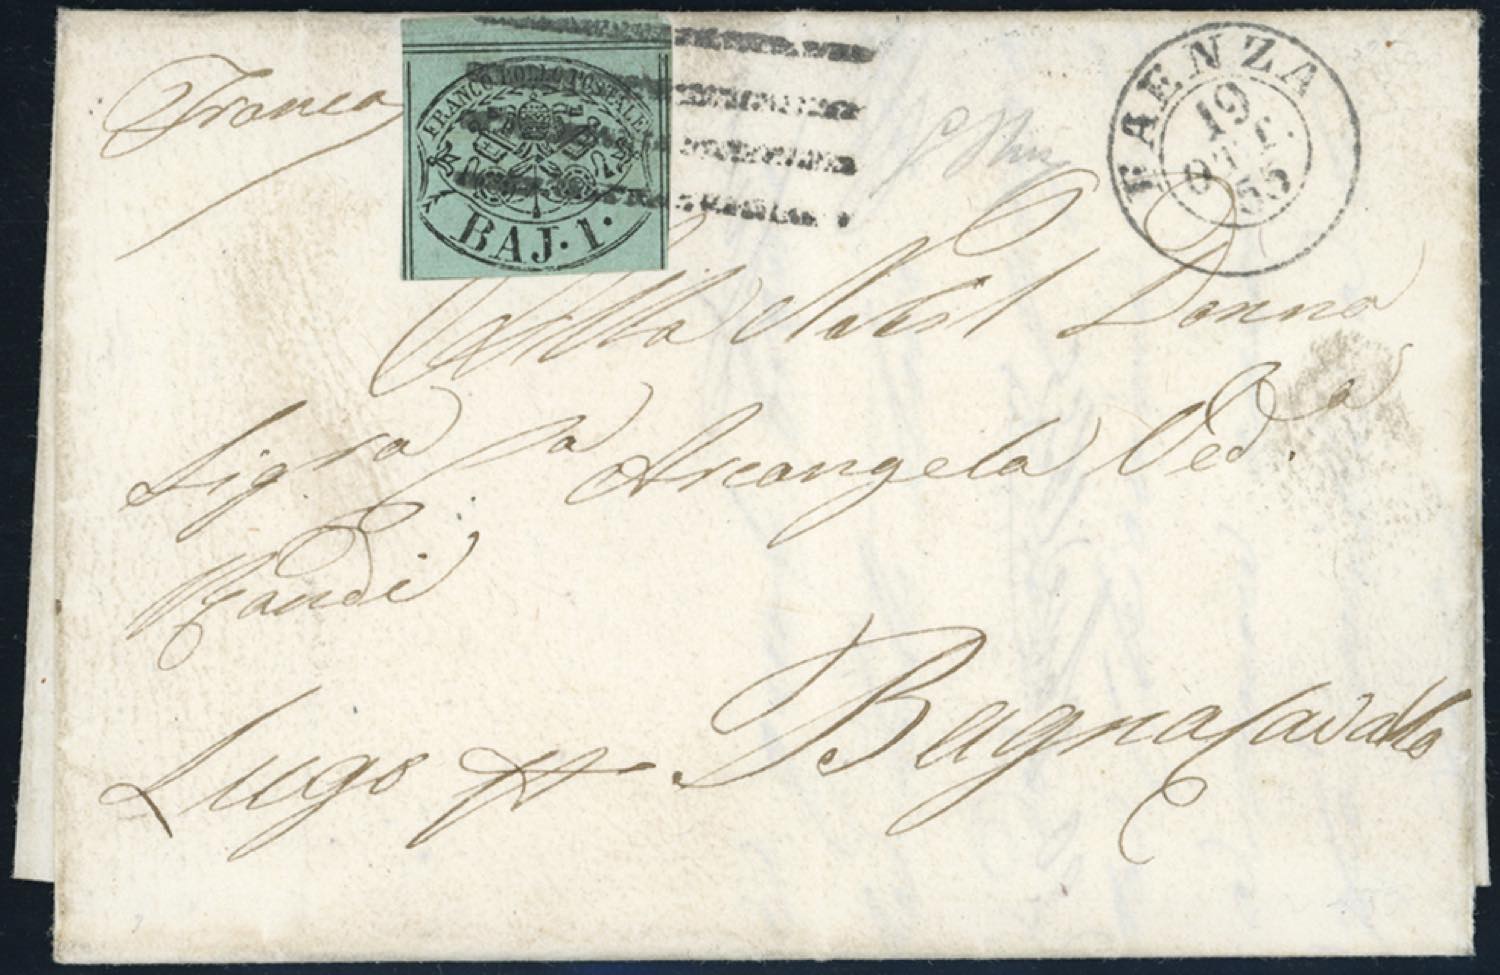 Franca
FRANCO BOLLO POSTALE
BAJ. 1.
FAENZA
19
OTT.
55
Alla Nobil Donna
Sigra Sa Arcangela Veda.
Lugo pr Bagnacavallo